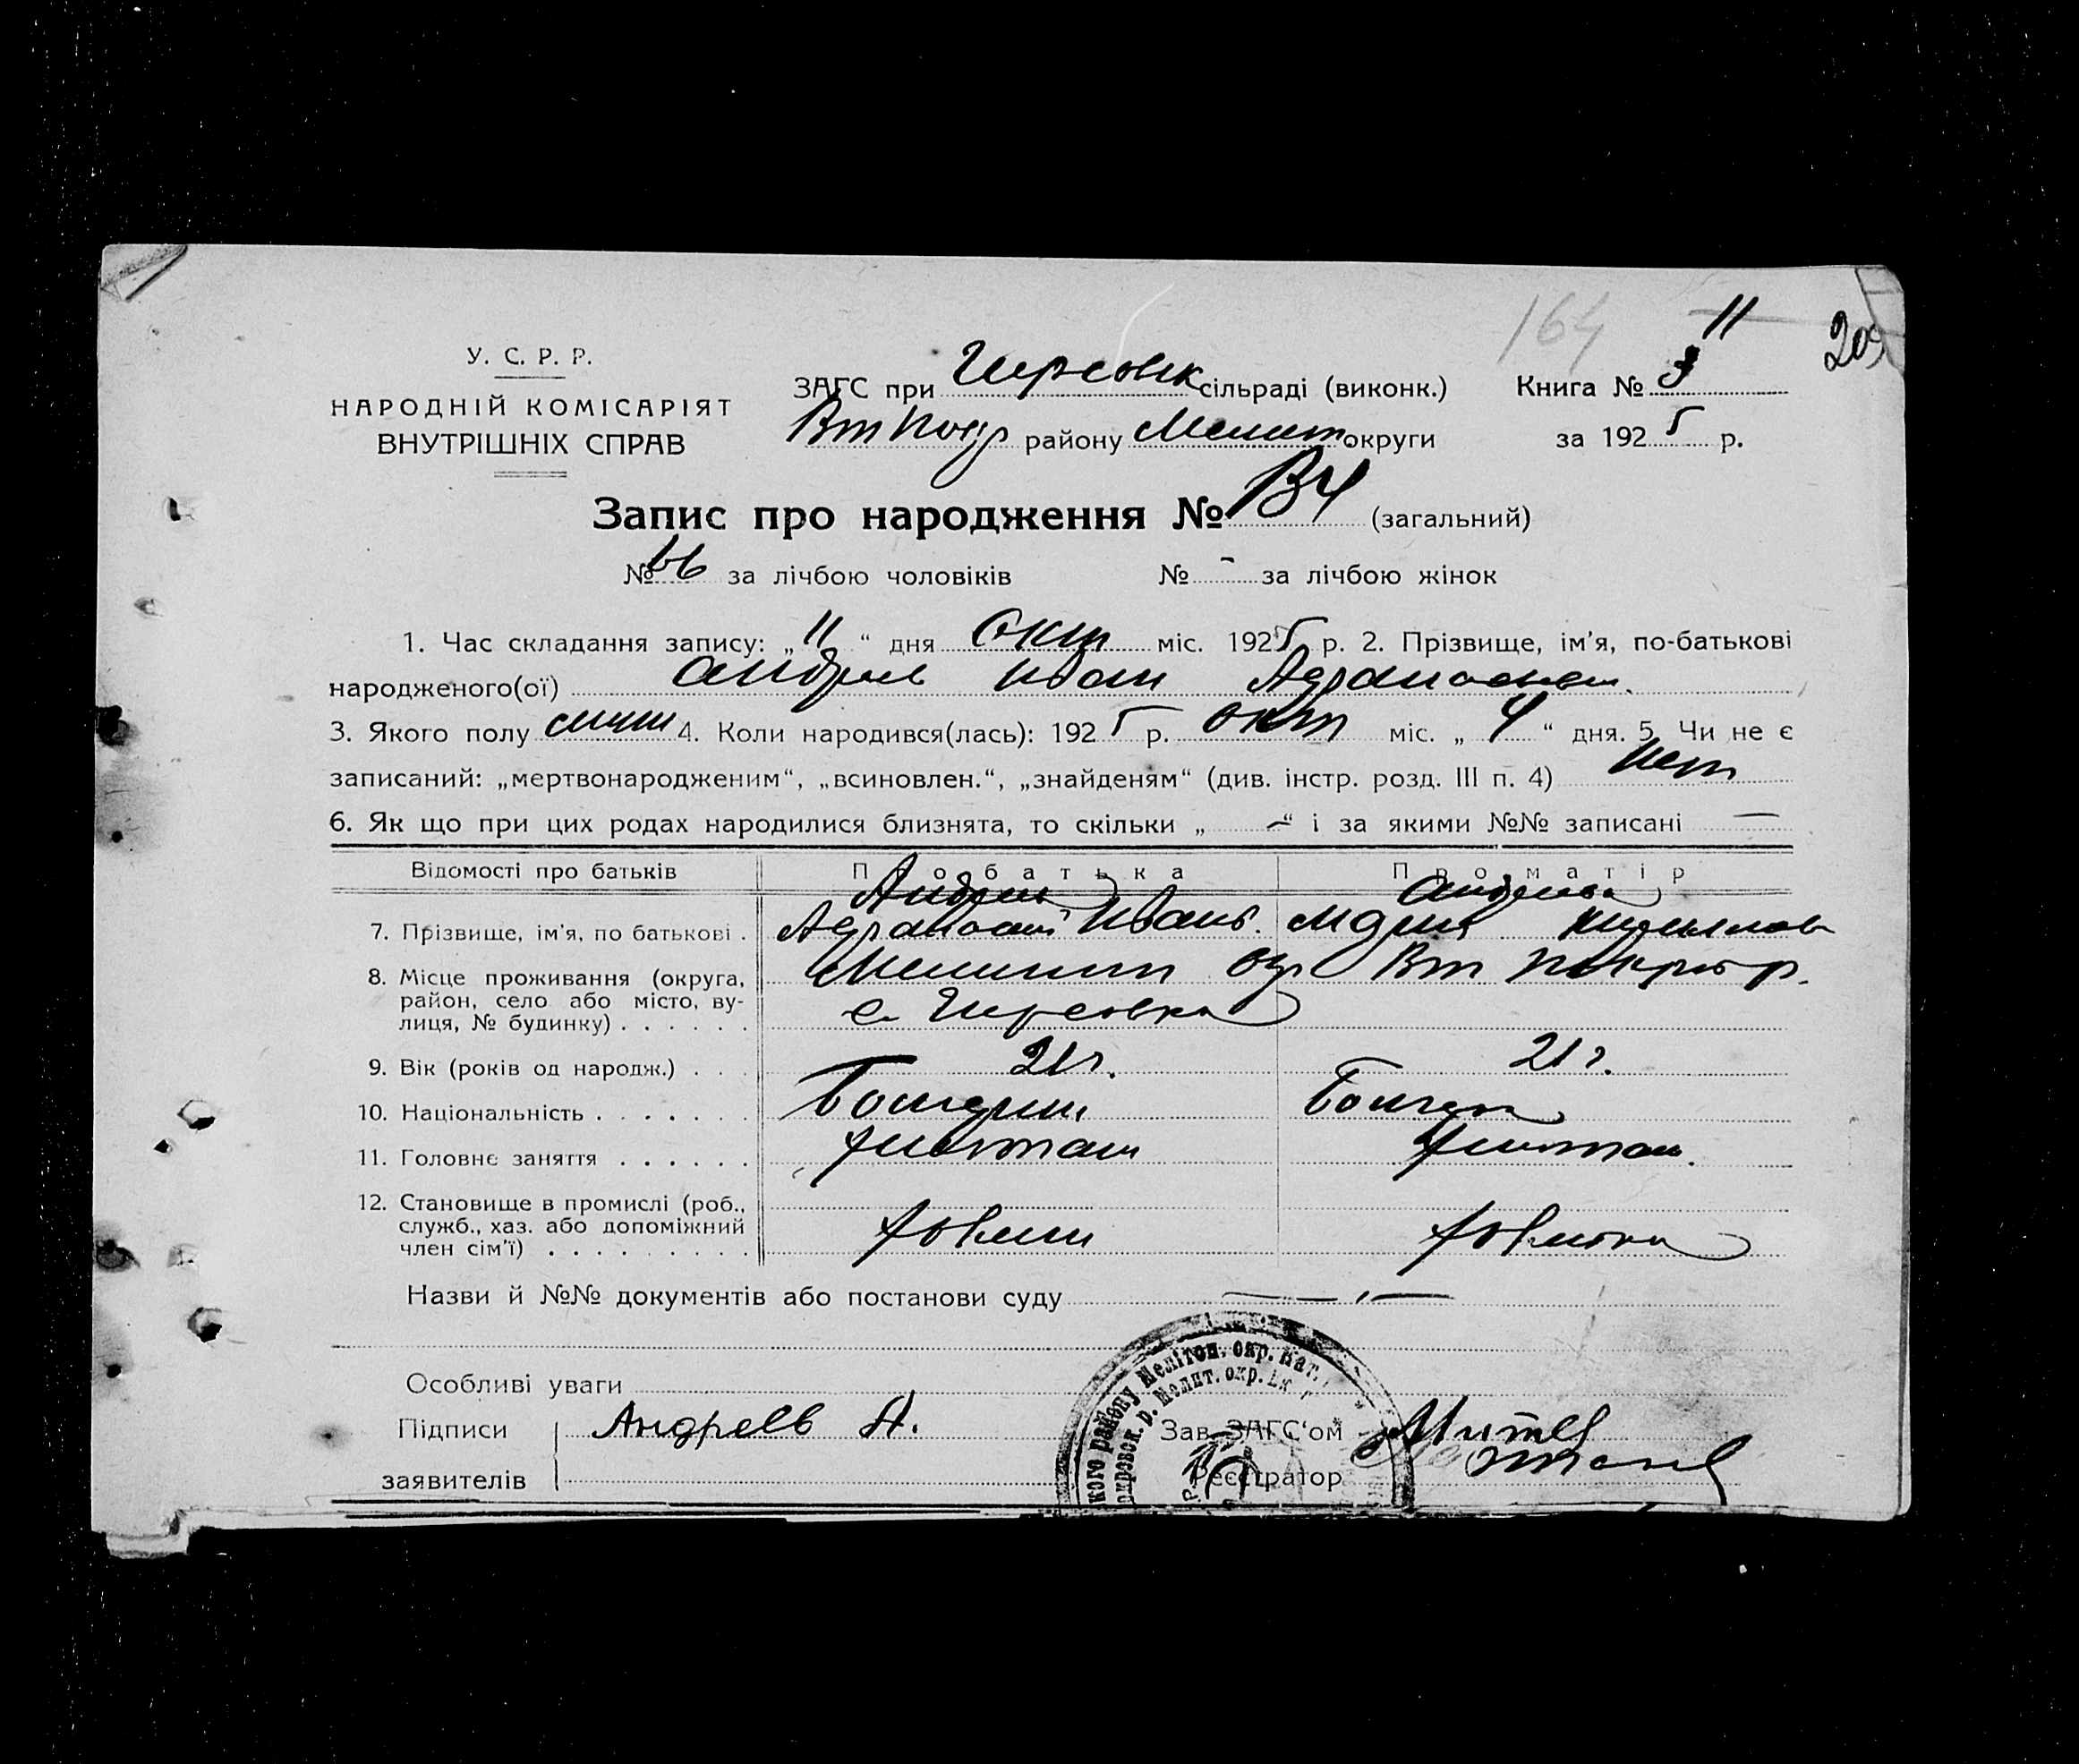 164 11
209
У. С. Р. Р.
НАРОДНІЙ КОМІСАРІЯТ
ВНУТРІШНІХ СПРАВ
ЗАГС при Гирсовк сільраді (виконк.) Книга № 3
району Мелит округи за 1925 р.
Запис про народження № (загальний)
№ 66 за лічбою чоловіків № - за лічбою жінок
1. Час складання запису: „11“ дня Окт міс. 1925 р. 2. Прізвище, ім'я, по-батькові
народженого(ої) Андреев Иван
3. Якого полу 4. Коли народився(лась): 1925 р. окт міс. „4“ дня. 5. Чи не є
записаний: „мертвонародженим“, „всиновлен.“, „знайденям“ (див. інстр. розд. III п. 4) нет
6. Як що при цих родах народилися близнята, то скільки „—“ і за якими №№ записані —
Відомості про батьків Про батька Про матір
Андреев Андреева
7. Прізвище, ім'я, по батькові . Иванов. Мария Кирилловн
8. Місце проживання (округа, район, село або місто, вулиця, № будинку) . . . . . . Мелитоп окр Вт Покров р.
с. Гирсовка
9. Вік (років од народж.) . . . 21 г. 21 г.
10. Національність . . . . . . . Болгарин Болгарк
11. Головнє заняття . . . . . .
12. Становище в промислі (роб., служб., хаз. або допоміжний член сім'ї) . . . . . . . . . хозяин хозяйка
Назви й №№ документів або постанови суду — „ —
Особливі уваги
Підписи Андреев А. Зав. ЗАГС'ом Митев
заявителів Реєстратор
кого району Мелітоп. окр. Кат.
окровск. р. Мелит. окр.